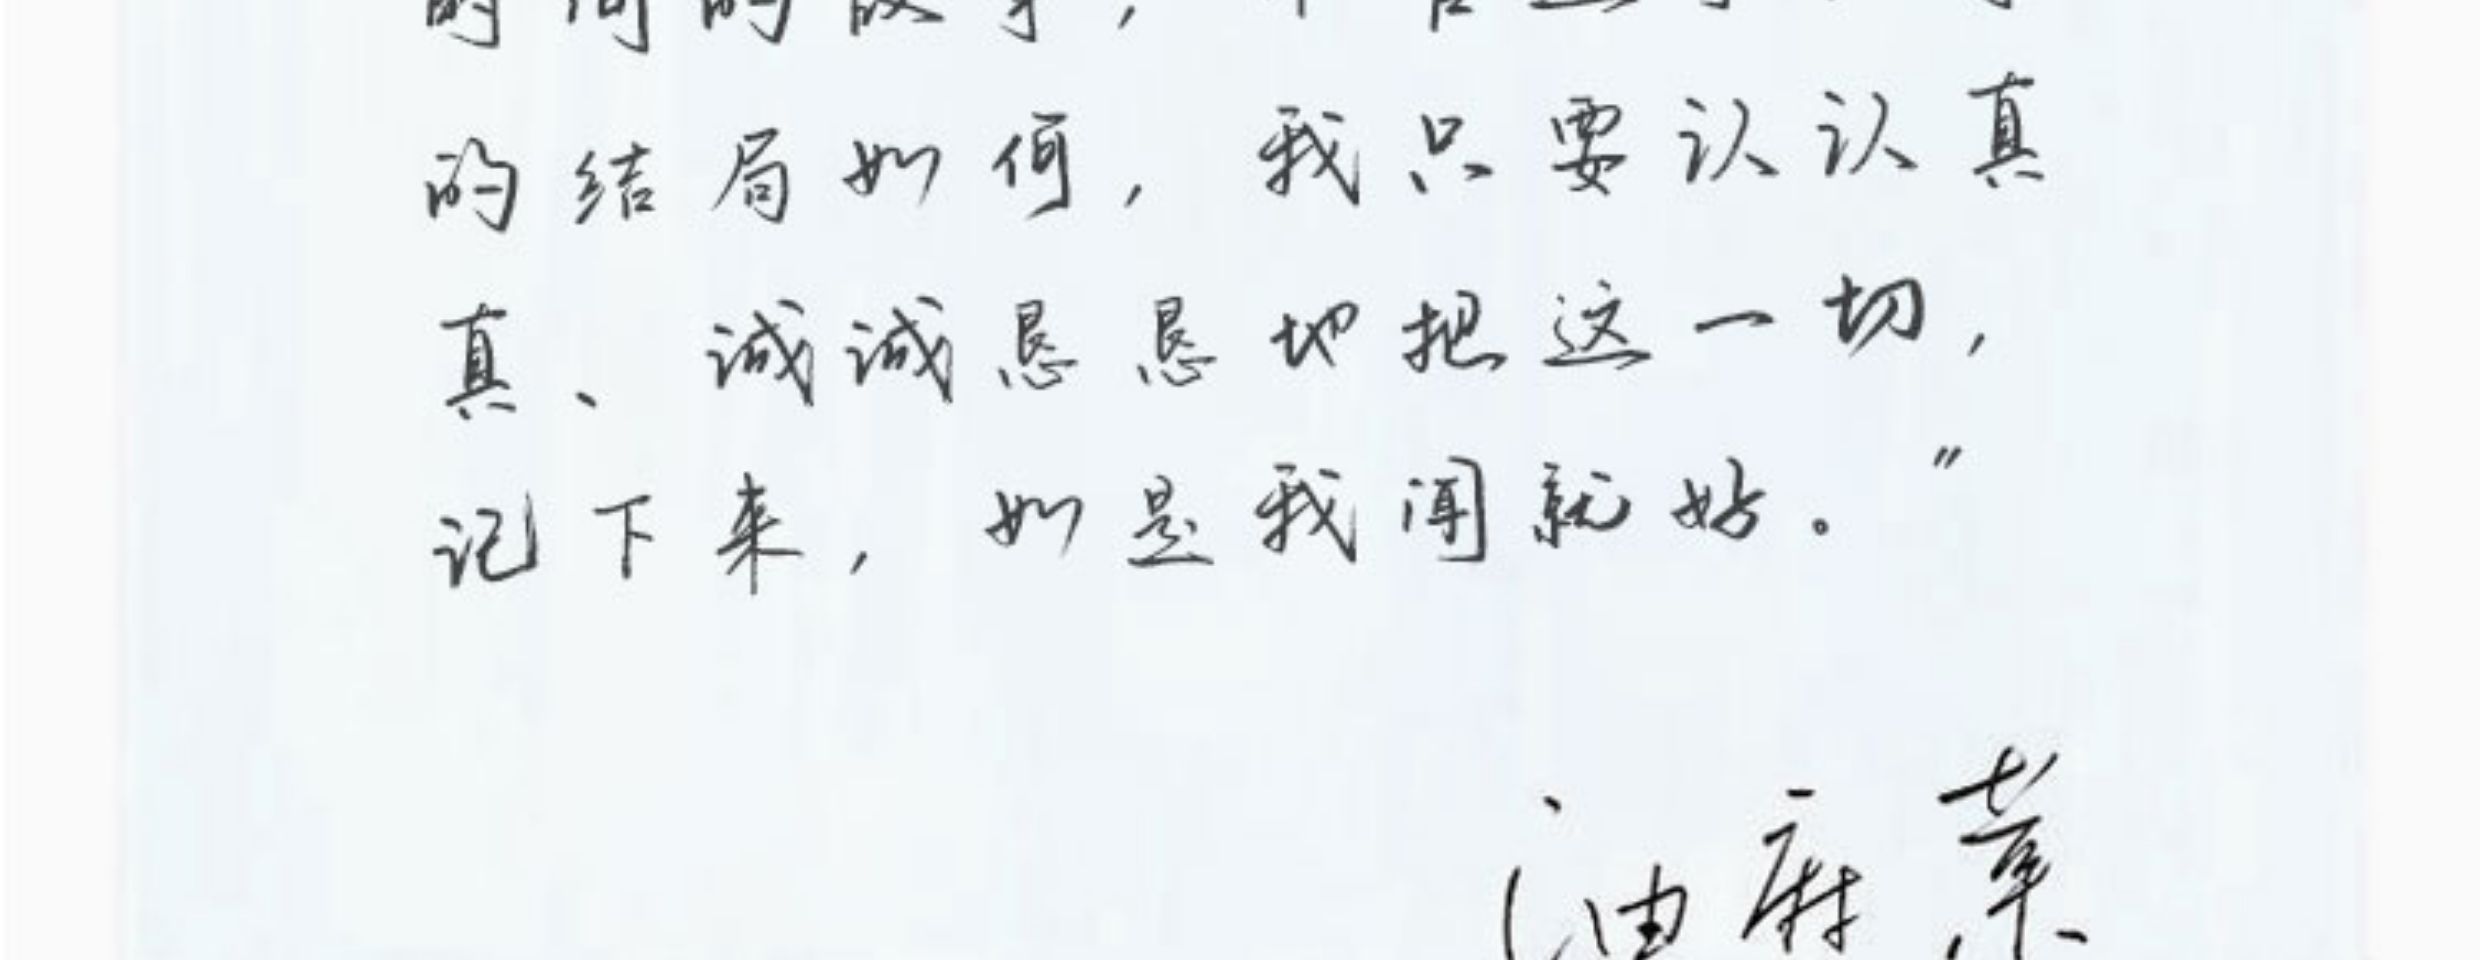 的结局如何，我只要认认真
真、诚诚恳恳地把这一切，
记下来，如是我闻就好。”
油麻菜